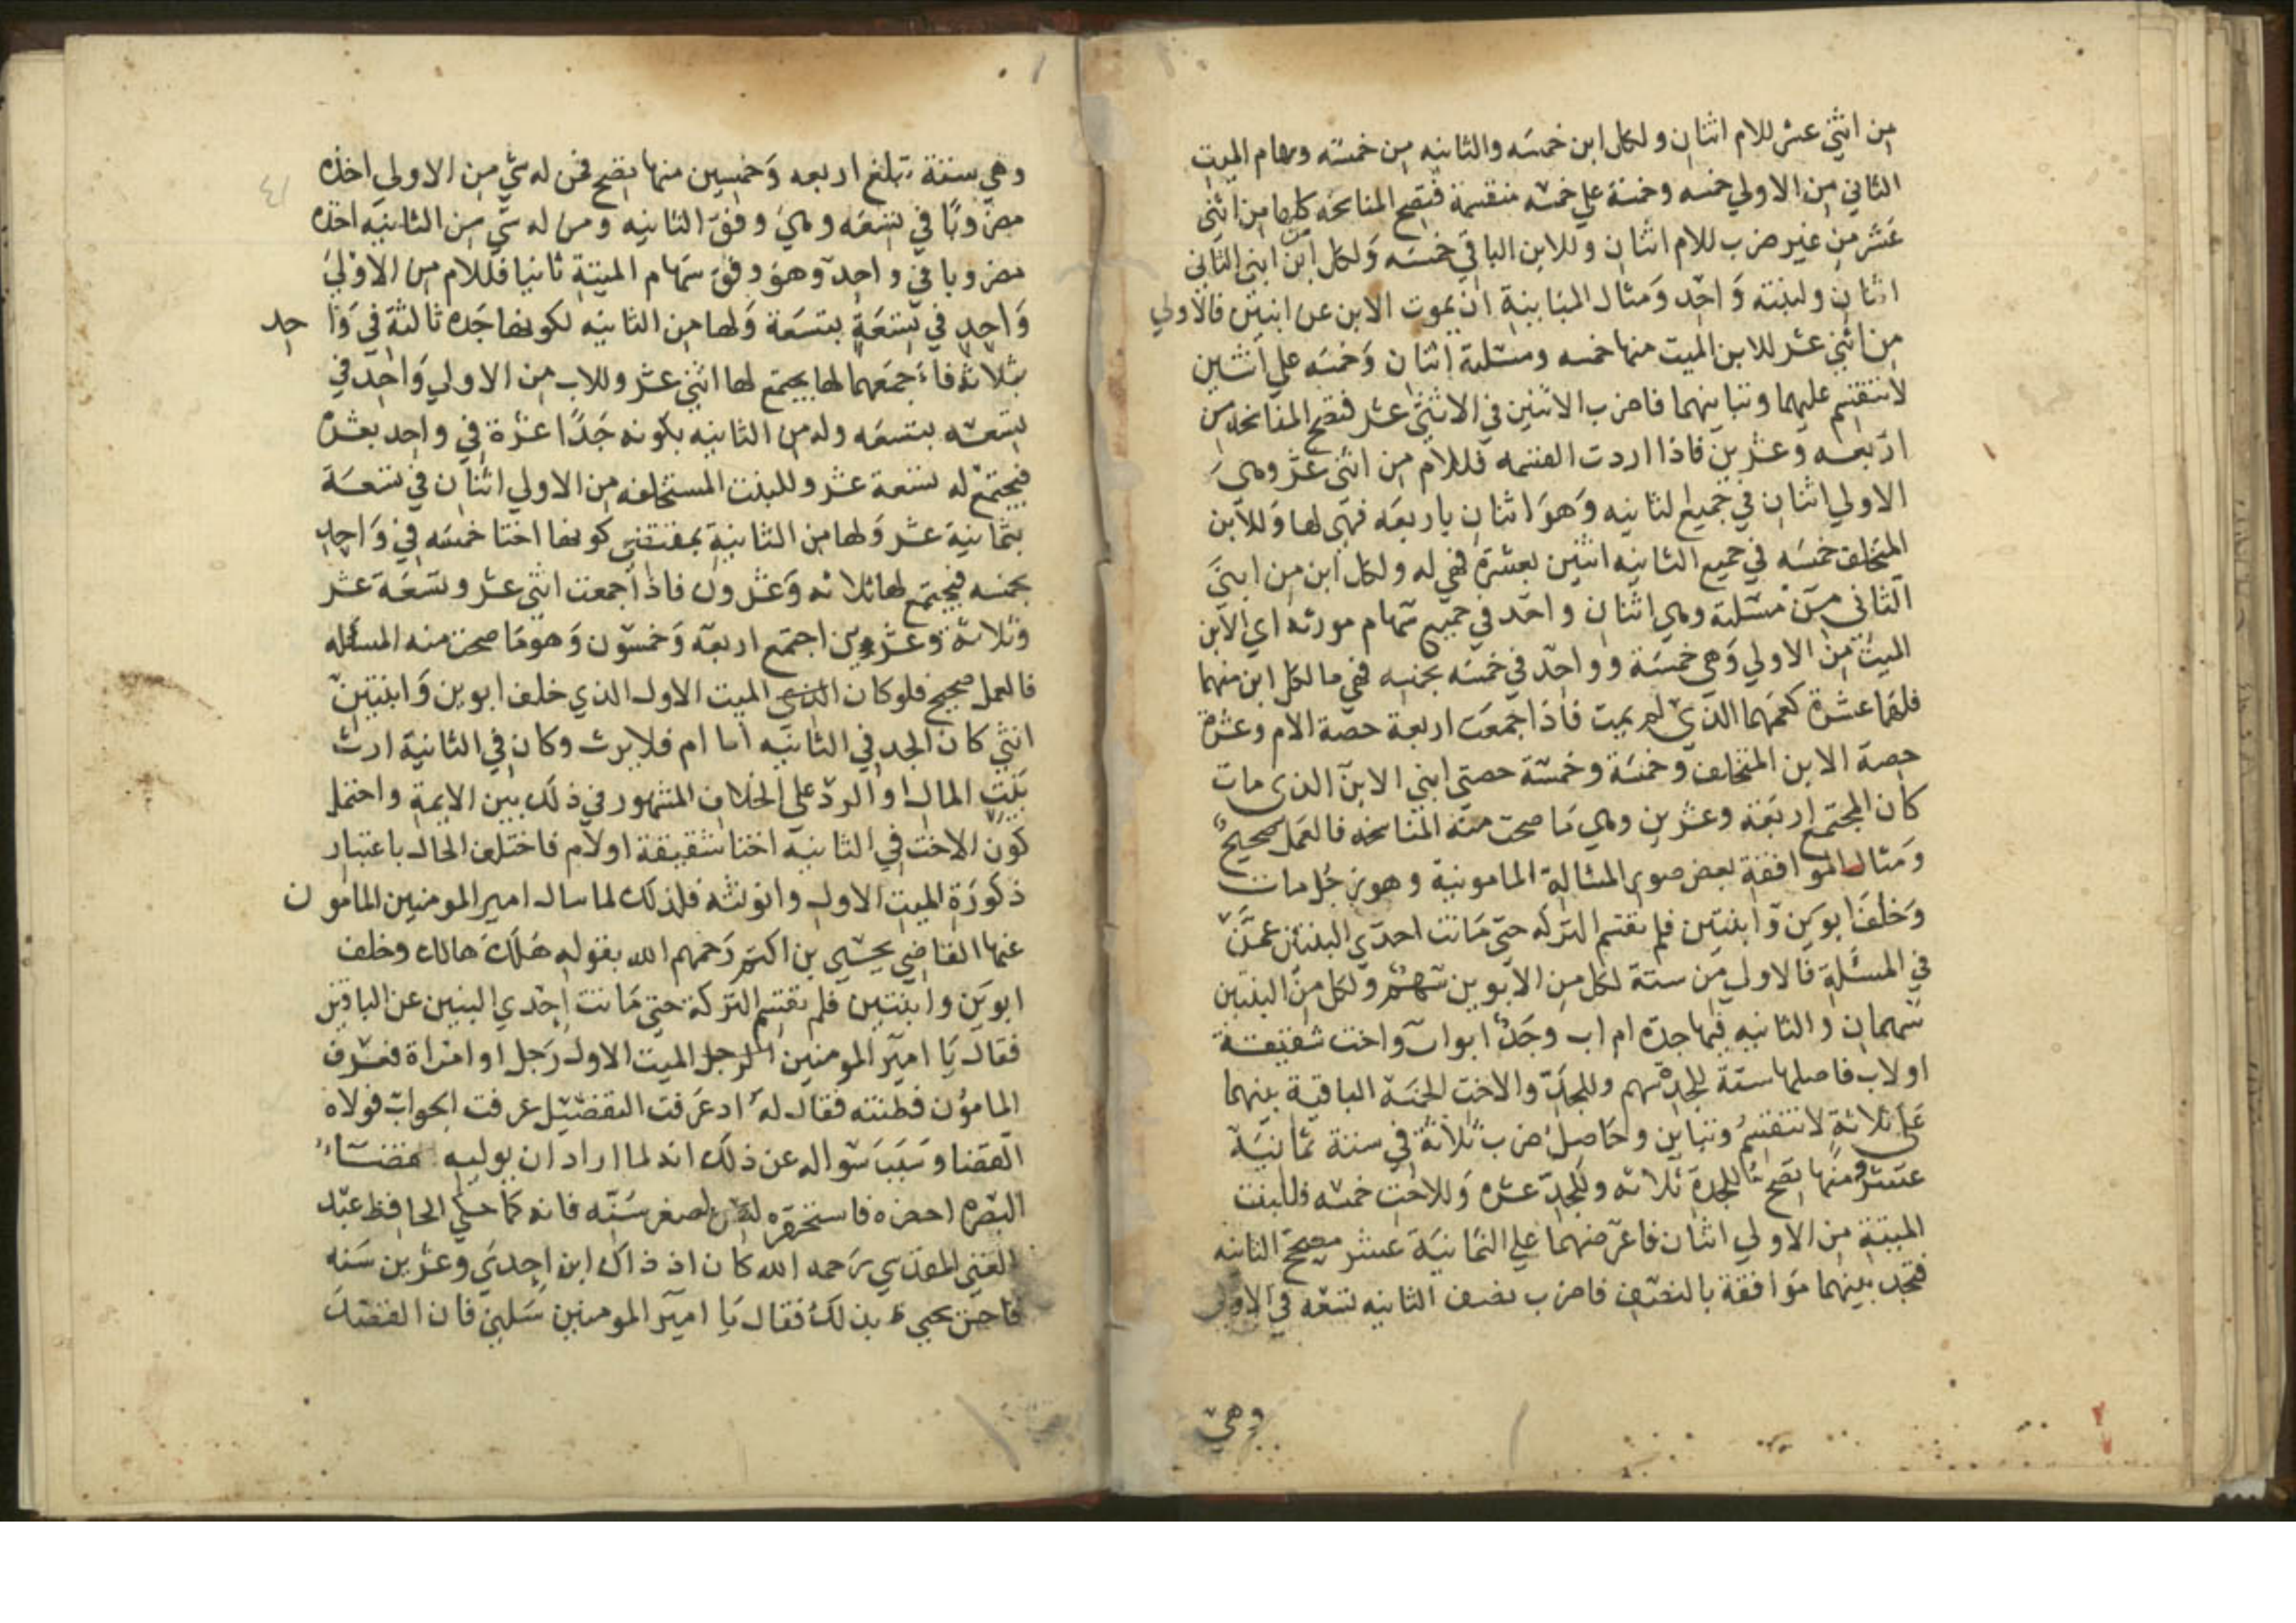 من اثني عشر للام اثنان ولكل ابن خمسه والثانيه من خمسته وسهام الميت
الثاني من الاولي خمسه وخمسة علي خمسه منقسمة فتصح المناسخه كلها من اثني
عشر من غير ضرب للام اثنان وللابن الباقي خمسه ولكل ابن من ابني الثاني
اثنان ولبنته واحد ومثال المباينة ان يموت الابن عن ابنين فالاولي
من اثني عشر للابن الميت منها خمسه ومسئلته اثنان وخمسه علي اثنين
لا تنقسم عليهما وتباينهما فاضرب الاثنين في الاثني عشر فتصح المناسخه من
اربعه وعشرين فاذا اردت القسمه فللام من اثني عشر وهي
الاولي اثنان في جميع الثانيه وهو اثنان باربعه فهي لها وللابن
المتخلف خمسه في جميع الثانيه اثنين بعشرة فهي له ولكل ابن من ابني
الثاني من مسئلته وهي اثنان واحد في جميع سهام مورثه اي الابن
الميت من الاولي وهي خمسة وواحد في خمسه بخمسه فهي ما لكل ابن منهما
فلهما عشرة كعمهما الذي لم يمت فاذا جمعت اربعة حصة الام وعشرة
حصة الابن المتخلف وخمسة وخمسة حصتي ابني الابن الذي مات
كان المجتمع اربعة وعشرين وهي ما صحت منه المناسخه فالعمل صحيح
ومثال الموافقة بعض صور المسئالة المامونية وهو رجل مات
وخلف ابوين وابنتين فلم تقتسم التركه حتي ماتت احدي البنتين عمن
في المسئلة فالاولي من ستة لكل من الابوين سهم ولكل من البنتين
سهمان والثانيه فيها جدة ام اب وجد ابو اب واخت شقيقة
او لاب فاصلها ستة للجدة سهم وللجد والاخت الخمسة الباقية بينهما
علي ثلاثة لا تنقسم وتباين وحاصل ضرب ثلاثة في ستة ثمانية
عشر ومنها تصح للجدة ثلاثه وللجد عشره وللاخت خمسه فللبنت
الميتة من الاولي اثنان فاعرضهما علي الثمانية عشر مصحح الثانيه
فتجد بينهما موافقة بالنصف فاضرب نصف الثانيه تسعه في الاولي
وهي
وهي ستة تبلغ اربعه وخمسين منها تصح فمن له شي من الاولي اخذه
مضروبا في تسعه وهي وفق الثانيه ومن له شي من الثانيه اخذه
مضروبا في واحد وهو وفق سهام الميتة ثانيا فللام من الاولي
واحد في تسعة بتسعة ولها من الثانيه لكونها جده ثالثة في واحد
بثلاثة فاجمعهما لها يجتمع لها اثني عشر وللاب من الاولي واحد في
تسعه بتسعه وله من الثانيه بكونه جدا عشرة في واحد بعشره
فيجتمع له تسعة عشر وللبنت المستخلفه من الاولي اثنان في تسعة
بثمانية عشر ولها من الثانية بمقتضي كونها اختا خمسه في واحد
بخمسه فيجتمع لها ثلاثه وعشرون فاذا جمعت اثني عشر وتسعة عشر
وثلاثة وعشرين اجتمع اربعه وخمسون وهو ما صحت منه المسئله
فالعمل صحيح فلو كان الميت الاول الذي خلف ابوين وابنتين
انثي كان الجد في الثانيه ابا ام فلا يرث وكان في الثانية ارث
بيت المال او الرد علي الخلاف المشهور في ذلك بين الايمة واحتمل
كون الاخت في الثانيه اختا شقيقة او لام فاختلف الحال باعتبار
ذكورة الميت الاول وانوثته فلذلك لما سال امير المومنين المامون
عنها القاضي يحيي بن اكثم رحمهم الله بقوله هلك هالك وخلف
ابوين وابنتين فلم تقتسم التركة حتي ماتت احدي البنتين عن الباقين
فقال يا امير المومنين الميت الاول رجل او امراة فعرف
المامون فطنته فقال له اذ عرفت التفضيل عرفت الجواب فولاه
القضا وسبب سواله عن ذلك انه لما اراد ان يوليه قضاء
البصره احضره فاستحقره لصغر سنه فانه كما حكي الحافظ عبد
الغني المقدسي رحمه الله كان اذ ذاك ابن احدي وعشرين سنه
فاحس يحيي بذلك فقال يا امير المومنين سلني فان القصد